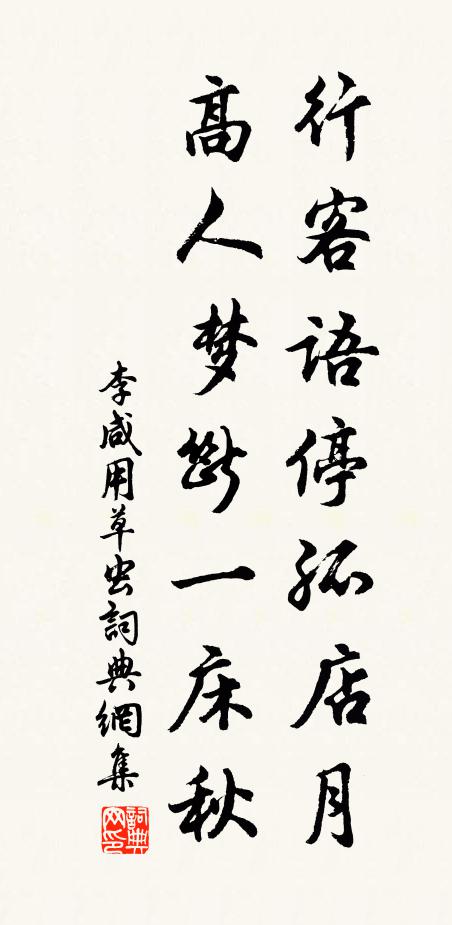 行客語停孤店月
高人梦断一床秋
李咸用草虫詞典網集
詞典网印